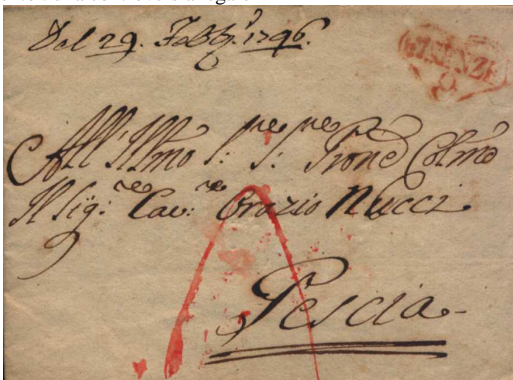 Del 29. Febb.º 1796.
FIRENZE
All'Illmõ S:re S:re Prone Colmõ
Il Sig:re Cav:re Orazio Nucci
Pescia